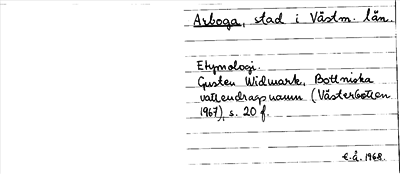 Arboga, stad i Västm. län.
Etymologi.
Gusten Widmark, Bottniska
vattendragsnamn (Västerbotten
1967), s. 20 f.
E.Å. 1968.